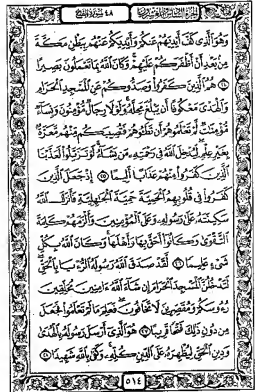 سورة الفتح ٤٨
وَهُوَ ٱلَّذِى كَفَّ أَيْدِيَهُمْ عَنكُمْ وَأَيْدِيَكُمْ عَنْهُم بِبَطْنِ مَكَّةَ
مِنۢ بَعْدِ أَنْ أَظْفَرَكُمْ عَلَيْهِمْ وَكَانَ ٱللَّهُ بِمَا تَعْمَلُونَ بَصِيرًا
۝٢٤ هُمُ ٱلَّذِينَ كَفَرُوا۟ وَصَدُّوكُمْ عَنِ ٱلْمَسْجِدِ ٱلْحَرَامِ
وَٱلْهَدْىَ مَعْكُوفًا أَن يَبْلُغَ مَحِلَّهُۥ وَلَوْلَا رِجَالٌ مُّؤْمِنُونَ وَنِسَآءٌ
مُّؤْمِنَٰتٌ لَّمْ تَعْلَمُوهُمْ أَن تَطَـُٔوهُمْ فَتُصِيبَكُم مِّنْهُم مَّعَرَّةٌۢ
بِغَيْرِ عِلْمٍ لِّيُدْخِلَ ٱللَّهُ فِى رَحْمَتِهِۦ مَن يَشَآءُ لَوْ تَزَيَّلُوا۟ لَعَذَّبْنَا
ٱلَّذِينَ كَفَرُوا۟ مِنْهُمْ عَذَابًا أَلِيمًا ۝٢٥ إِذْ جَعَلَ ٱلَّذِينَ
كَفَرُوا۟ فِى قُلُوبِهِمُ ٱلْحَمِيَّةَ حَمِيَّةَ ٱلْجَٰهِلِيَّةِ فَأَنزَلَ ٱللَّهُ
سَكِينَتَهُۥ عَلَىٰ رَسُولِهِۦ وَعَلَى ٱلْمُؤْمِنِينَ وَأَلْزَمَهُمْ كَلِمَةَ
ٱلتَّقْوَىٰ وَكَانُوٓا۟ أَحَقَّ بِهَا وَأَهْلَهَا وَكَانَ ٱللَّهُ بِكُلِّ
شَىْءٍ عَلِيمًا ۝٢٦ لَّقَدْ صَدَقَ ٱللَّهُ رَسُولَهُ ٱلرُّءْيَا بِٱلْحَقِّ
لَتَدْخُلُنَّ ٱلْمَسْجِدَ ٱلْحَرَامَ إِن شَآءَ ٱللَّهُ ءَامِنِينَ مُحَلِّقِينَ
رُءُوسَكُمْ وَمُقَصِّرِينَ لَا تَخَافُونَ فَعَلِمَ مَا لَمْ تَعْلَمُوا۟ فَجَعَلَ
مِن دُونِ ذَٰلِكَ فَتْحًا قَرِيبًا ۝٢٧ هُوَ ٱلَّذِىٓ أَرْسَلَ رَسُولَهُۥ بِٱلْهُدَىٰ
وَدِينِ ٱلْحَقِّ لِيُظْهِرَهُۥ عَلَى ٱلدِّينِ كُلِّهِۦ وَكَفَىٰ بِٱللَّهِ شَهِيدًا ۝٢٨
٥١٤